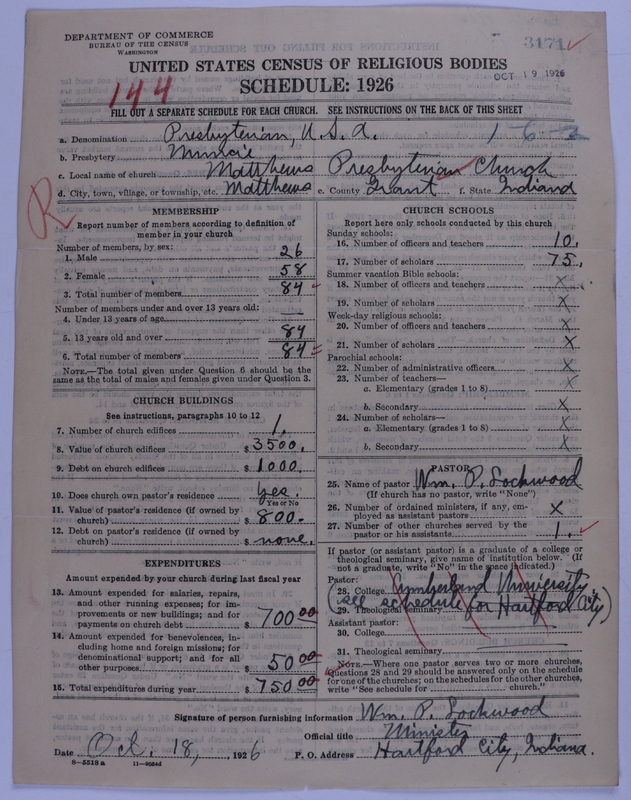 DEPARTMENT OF COMMERCE
BUREAU OF THE CENSUS
WASHINGTON
3171
UNITED STATES CENSUS OF RELIGIOUS BODIES
OCT 19 1926
SCHEDULE: 1926
144
FILL OUT A SEPARATE SCHEDULE FOR EACH CHURCH. SEE INSTRUCTIONS ON THE BACK OF THIS SHEET
a. Denomination Presbyterian, U.S.A. 1-6-2
b. Presbytery Muncie
c. Local name of church Matthews Presbyterian Church
d. City, town, village, or township, etc. Matthews e. County Grant f. State Indiana
R
MEMBERSHIP
Report number of members according to definition of
member in your church
Number of members, by sex:
1. Male 26
2. Female 58
3. Total number of members 84
Number of members under and over 13 years old:
4. Under 13 years of age
5. 13 years old and over 84
6. Total number of members 84
NOTE.—The total given under Question 6 should be
same as the total of males and females given under Question 3.
CHURCH BUILDINGS
See instructions, paragraphs 10 to 12
7. Number of church edifices 1.
8. Value of church edifices $ 3500.
9. Debt on church edifices $ 1000.
10. Does church own pastor's residence yes.
Yes or No
11. Value of pastor's residence (if owned by
church) $ 800.-
12. Debt on pastor's residence (if owned by
church) $ none.
EXPENDITURES
Amount expended by your church during last fiscal year
13. Amount expended for salaries, repairs,
and other running expenses; for im-
provements or new buildings; and for
payments on church debt $ 700 00
14. Amount expended for benevolences, in-
cluding home and foreign missions; for
denominational support; and for all
other purposes $ 50 00
15. Total expenditures during year $ 750 00
CHURCH SCHOOLS
Report here only schools conducted by this church
Sunday schools:
16. Number of officers and teachers 10.
17. Number of scholars 75.
Summer vacation Bible schools:
18. Number of officers and teachers X
19. Number of scholars X
Week-day religious schools:
20. Number of officers and teachers X
21. Number of scholars X
Parochial schools:
22. Number of administrative officers X
23. Number of teachers—
a. Elementary (grades 1 to 8) X
b. Secondary X
24. Number of scholars—
a. Elementary (grades 1 to 8) X
b. Secondary X
PASTOR
25. Name of pastor Wm. P. Lockwood
(If church has no pastor, write "None")
26. Number of ordained ministers, if any, em-
ployed as assistant pastors X
27. Number of other churches served by the
pastor or his assistants 1.
If pastor (or assistant pastor) is a graduate of a college or
theological seminary, give name of institution below. (If
not a graduate, write "No" in the space indicated.)
Pastor:
28. College Cumberland University
29. Theological seminary (see schedule for Hartford City)
Assistant pastor:
30. College
31. Theological seminary
NOTE.—Where one pastor serves two or more churches,
Questions 28 and 29 should be answered only on the schedule
for one of the churches; on the schedules for the other churches,
write "See schedule for church."
Signature of person furnishing information Wm. P. Lockwood
Official title Minister
Date Oct. 18, 1926 P. O. Address Hartford City, Indiana.
8—5518 a 11—9064d